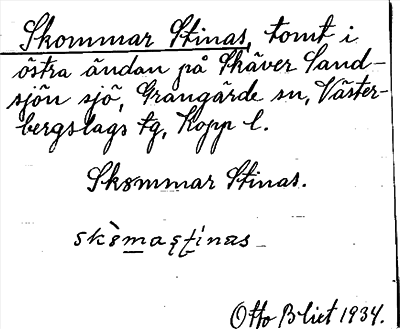 Skommar Stinas, tomt i
östra ändan på Skäver Sand-
sjön sjö, Grangärde sn, Väster-
bergslags tg, Kopp l.
Skommar Stinas.
Otto Blixt 1934.